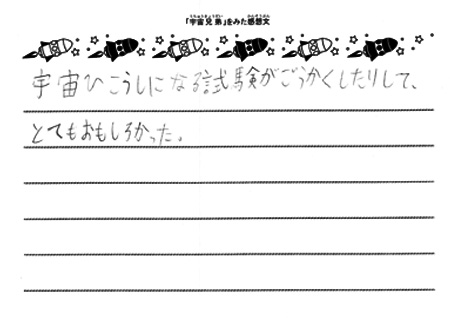 「宇宙兄弟」をみた感想文
宇宙ひこうしになる試験がごうかくしたりして、
とてもおもしろかった。